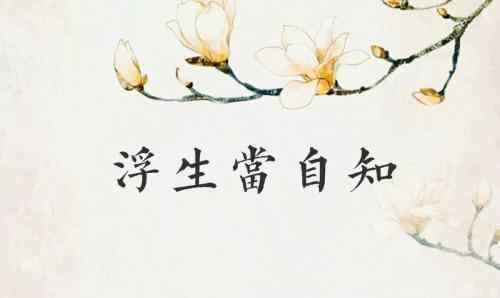 浮生當自知